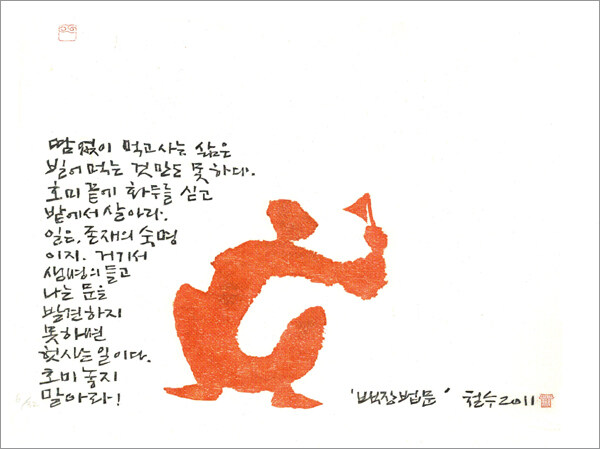 땀 없이 먹고 사는 삶은
빌어먹는 것만도 못하다.
호미 끝에 화두를 싣고
밭에서 살아라.
일은, 존재의 숙명
이지. 거기서
생명의 들고
나는 문을
발견하지
못하면
헛사는 일이다.
호미 놓지
말아라!
'백장법문' 철수 2011